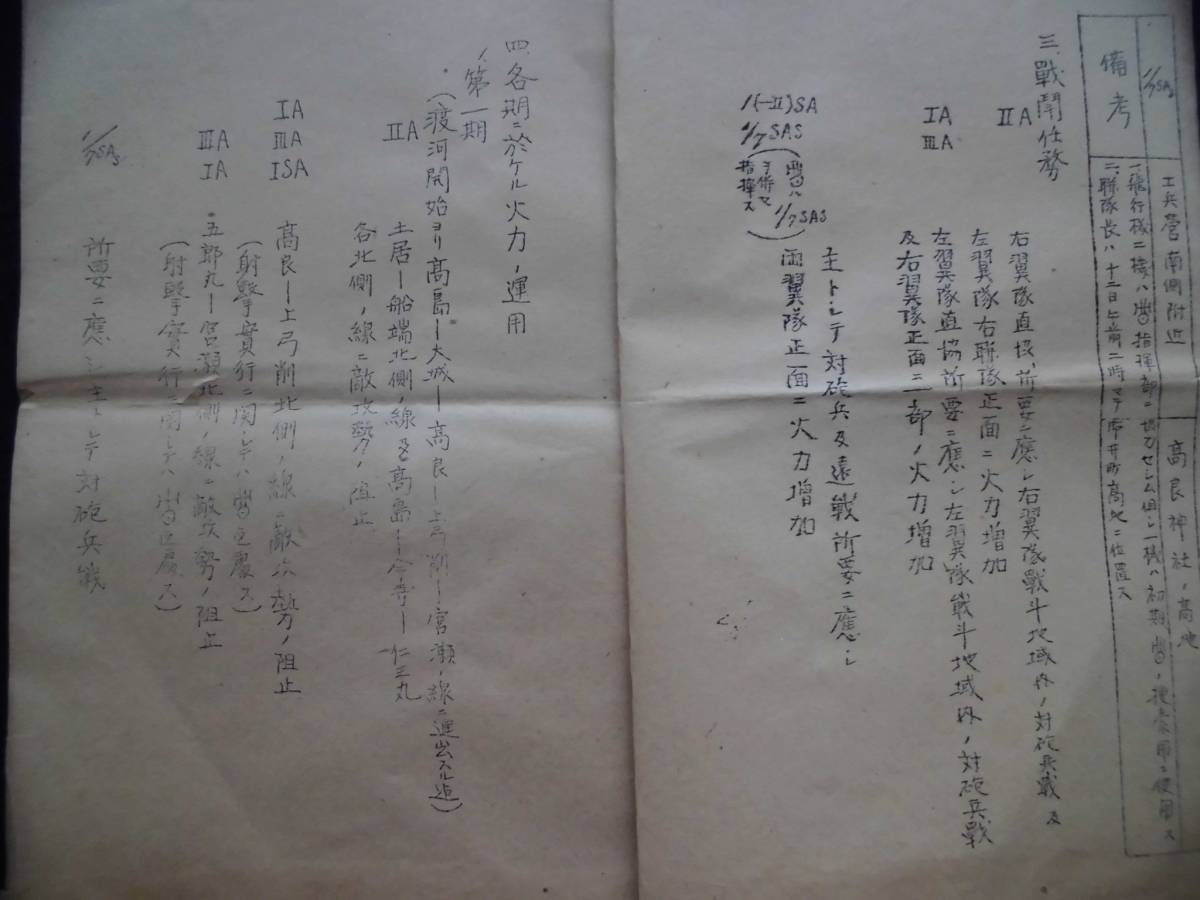 1/7SAs
工兵営南側附近
高良神社ノ高地
備考
一、飛行機二機ハ当指揮部ニ協力セシム但シ一機ハ初期当ノ捜索用ニ使用ス
二、聯隊長ハ十三日午前二時マデ 高地ニ位置ス
三、戰鬪任務
ⅡA
右翼隊直協、所要ニ應シ右翼隊戦斗地域内ノ対砲兵戦及
左翼隊右聯隊正面ニ火力増加
ⅠA
ⅢA
左翼隊直協所要ニ應シ左翼隊戦斗地域内ノ対砲兵戦
及右翼隊正面ニ一部ノ火力増加
1(-Ⅱ)SA
1/7SAS
(当ハ1/7SAS
ヲ併セ
指揮ス)
主トシテ対砲兵及遠戦所要ニ應シ
両翼隊正面ニ火力増加
四、各期ニ於ケル火力ノ運用
1、第一期
(渡河開始ヨリ高島ー大城ー高良ー上弓削ー宮瀬ノ線ニ進出スル迄)
ⅡA
土居ー船端北側ノ線及高島ー今寺ー仁王丸
各北側ノ線ニ敵攻勢ノ阻止
ⅠA
ⅢA
ⅠSA
高良ー上弓削北側ノ線ニ敵攻勢ノ阻止
(射撃實行ニ関シテハ当区處ス)
ⅢA
ⅠA
五郎丸ー宮瀬北側ノ線ニ敵攻勢ノ阻止
(射撃實行ニ関シテハ当区處ス)
1/7SAs
所要ニ應シ主トシテ対砲兵戦